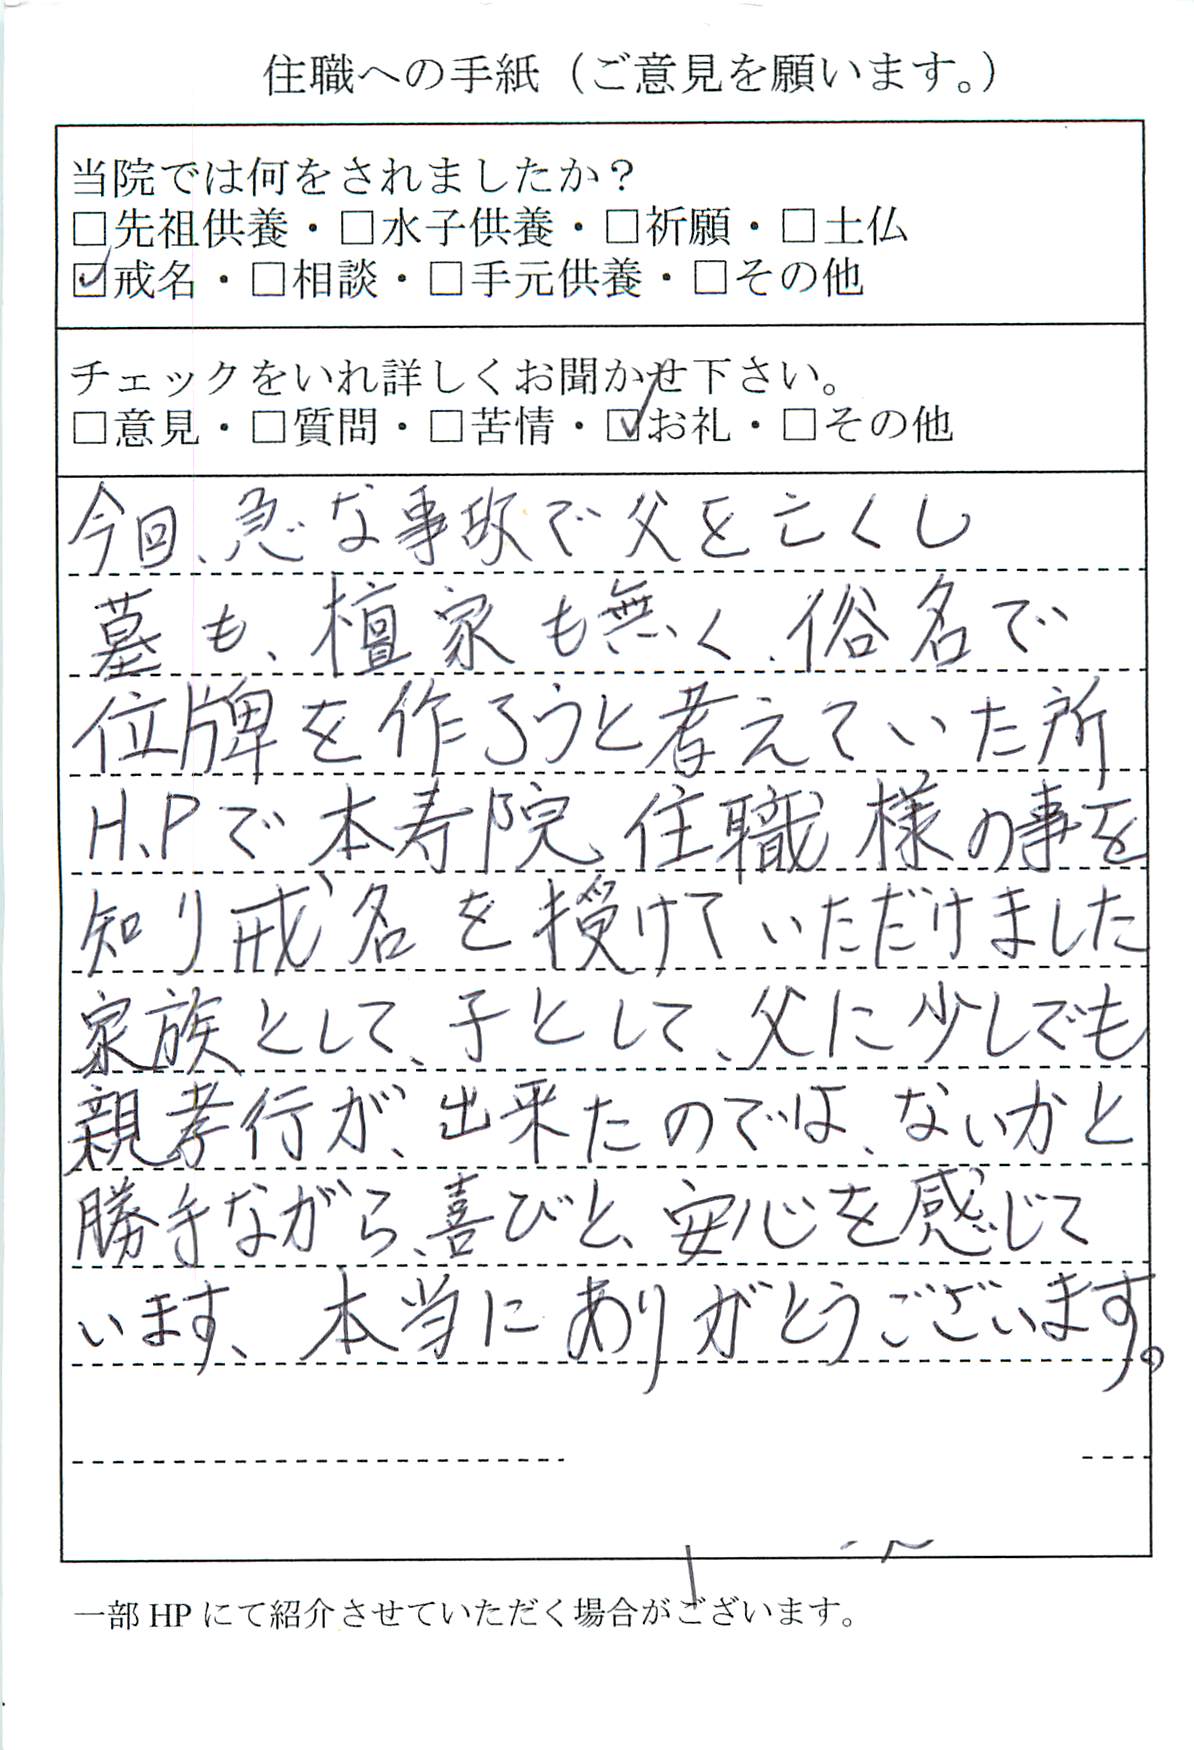 住職への手紙（ご意見を願います。）
当院では何をされましたか？
□先祖供養・□水子供養・□祈願・□土仏
☑戒名・□相談・□手元供養・□その他
チェックをいれ詳しくお聞かせ下さい。
□意見・□質問・□苦情・☑お礼・□その他
今回、急な事故で父を亡くし
墓も、檀家も無く、俗名で
位牌を作ろうと考えていた所
H.Pで本寿院、住職様の事を
知り戒名を授けていただけました
家族として、子として、父に少しでも
親孝行が、出来たのでは、ないかと
勝手ながら、喜びと、安心を感じて
います、本当にありがとうございます。
一部HPにて紹介させていただく場合がございます。